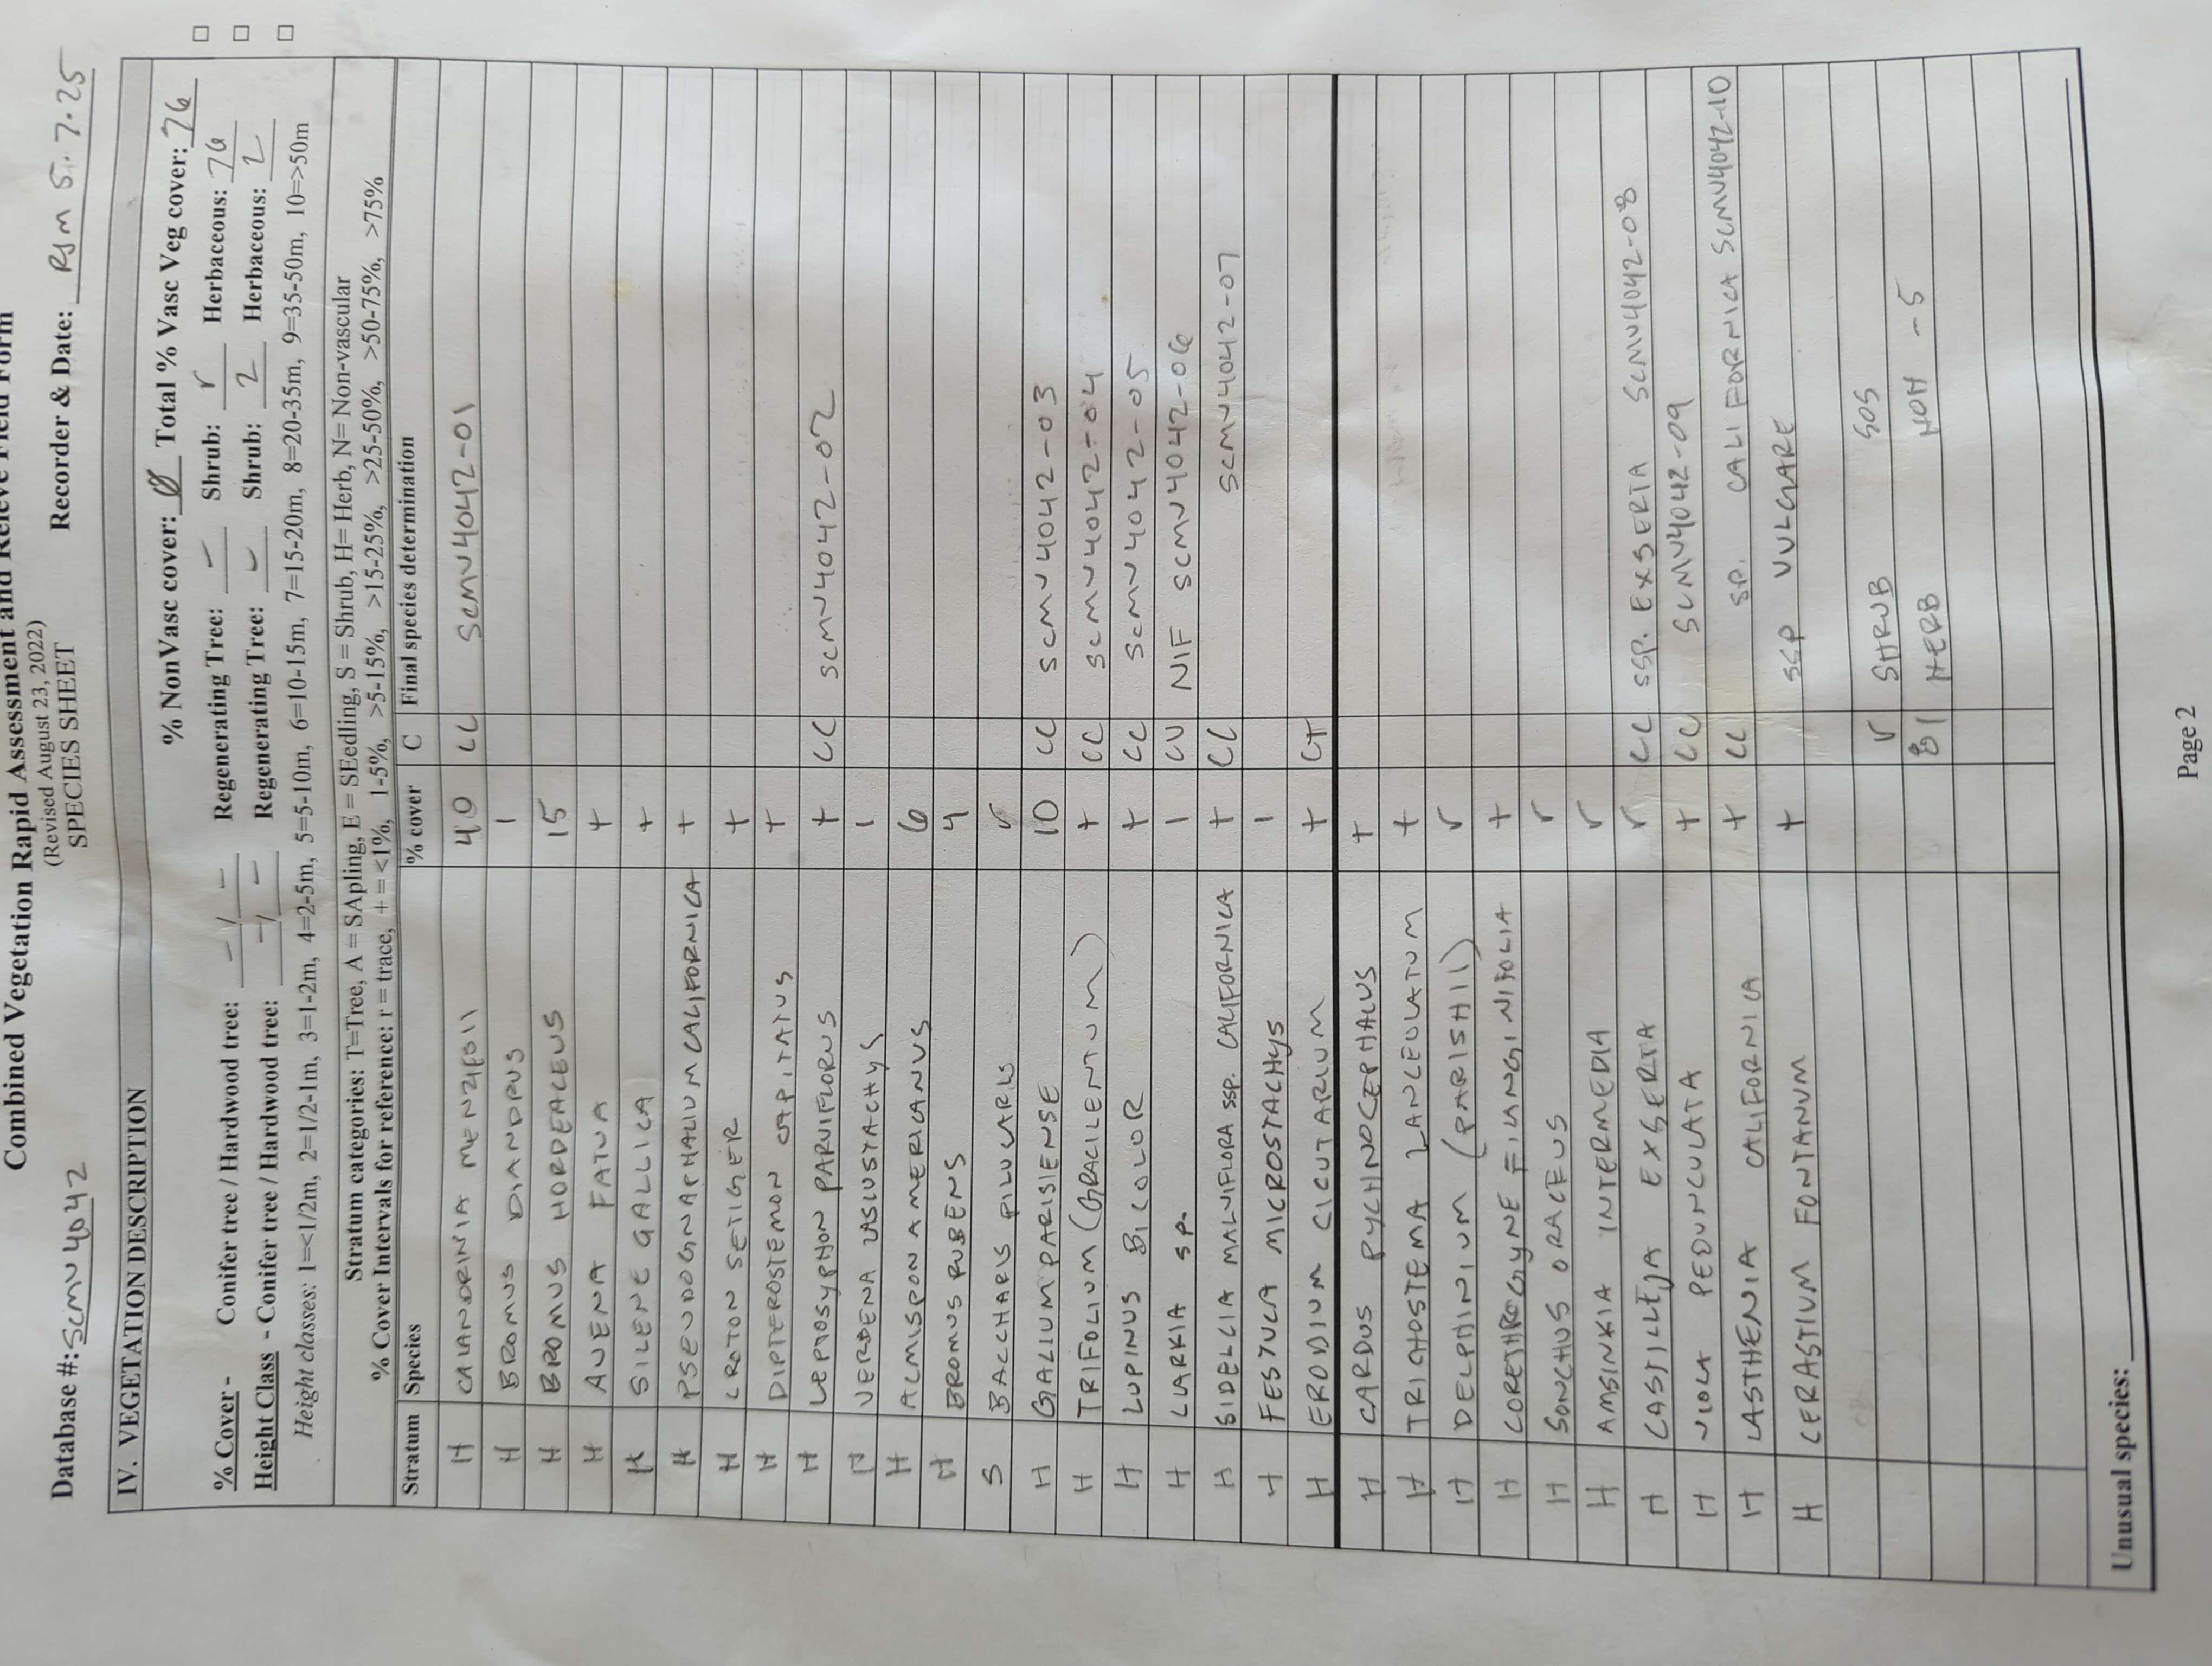 Combined Vegetation Rapid Assessment and Relevé Field Form
(Revised August 23, 2022)
SPECIES SHEET
Database #: SCMV4042 Recorder & Date: RJM 5.7.25
IV. VEGETATION DESCRIPTION
% NonVasc cover: Ø Total % Vasc Veg cover: 76
% Cover - Conifer tree / Hardwood tree: - / - Regenerating Tree: - Shrub: r Herbaceous: 76
Height Class - Conifer tree / Hardwood tree: - / - Regenerating Tree: - Shrub: 2 Herbaceous: 2
Height classes: 1=<1/2m, 2=1/2-1m, 3=1-2m, 4=2-5m, 5=5-10m, 6=10-15m, 7=15-20m, 8=20-35m, 9=35-50m, 10=>50m
Stratum categories: T=Tree, A = SApling, E = SEedling, S = Shrub, H= Herb, N= Non-vascular
% Cover Intervals for reference: r = trace, + = <1%, 1-5%, >5-15%, >15-25%, >25-50%, >50-75%, >75%
Stratum Species % cover C Final species determination
H CALANDRINIA MENZIESII 40 CC SCMV4042-01
H BROMUS DIANDRUS 1
H BROMUS HORDEACEUS 15
H AVENA FATUA +
H SILENE GALLICA +
H PSEUDOGNAPHALIUM CALIFORNICA +
H CROTON SETIGER +
H DIPTEROSTEMON CAPITATUS +
H LEPTOSYPHON PARVIFLORUS + CC SCMV4042-02
H VERBENA LASIOSTACHYS 1
H ACMISPON AMERICANUS 6
H BROMUS RUBENS 4
S BACCHARIS PILULARIS r
H GALIUM PARISIENSE 10 CC SCMV4042-03
H TRIFOLIUM (GRACILENTUM) + CC SCMV4042-04
H LUPINUS BICOLOR + CC SCMV4042-05
H CLARKIA SP. 1 CU NIF SCMV4042-06
H SIDELCIA MALVIFLORA SSP. CALIFORNICA + CC SCMV4042-07
H FESTUCA MICROSTACHYS 1
H ERODIUM CICUTARIUM + CT
H CARDUS PYCHNOCEPHALUS +
H TRICHOSTEMA LANCEOLATUM +
H DELPHINIUM (PARISHII) r
H CORETHROGYNE FILANGINIFOLIA +
H SONCHUS ORACEUS r
H AMSINKIA INTERMEDIA r
H CASTILLEJA EXSERTA r CC SSP. EXSERTA SCMV4042-08
H VIOLA PEDUNCULATA + CC SCMV4042-09
H LASTHENIA CALIFORNICA + CC SP. CALIFORNICA SCMV4042-10
H CERASTIUM FONTANUM + SSP VULGARE
r SHRUB SOS
81 HERB NOH -5
Unusual species:
Page 2